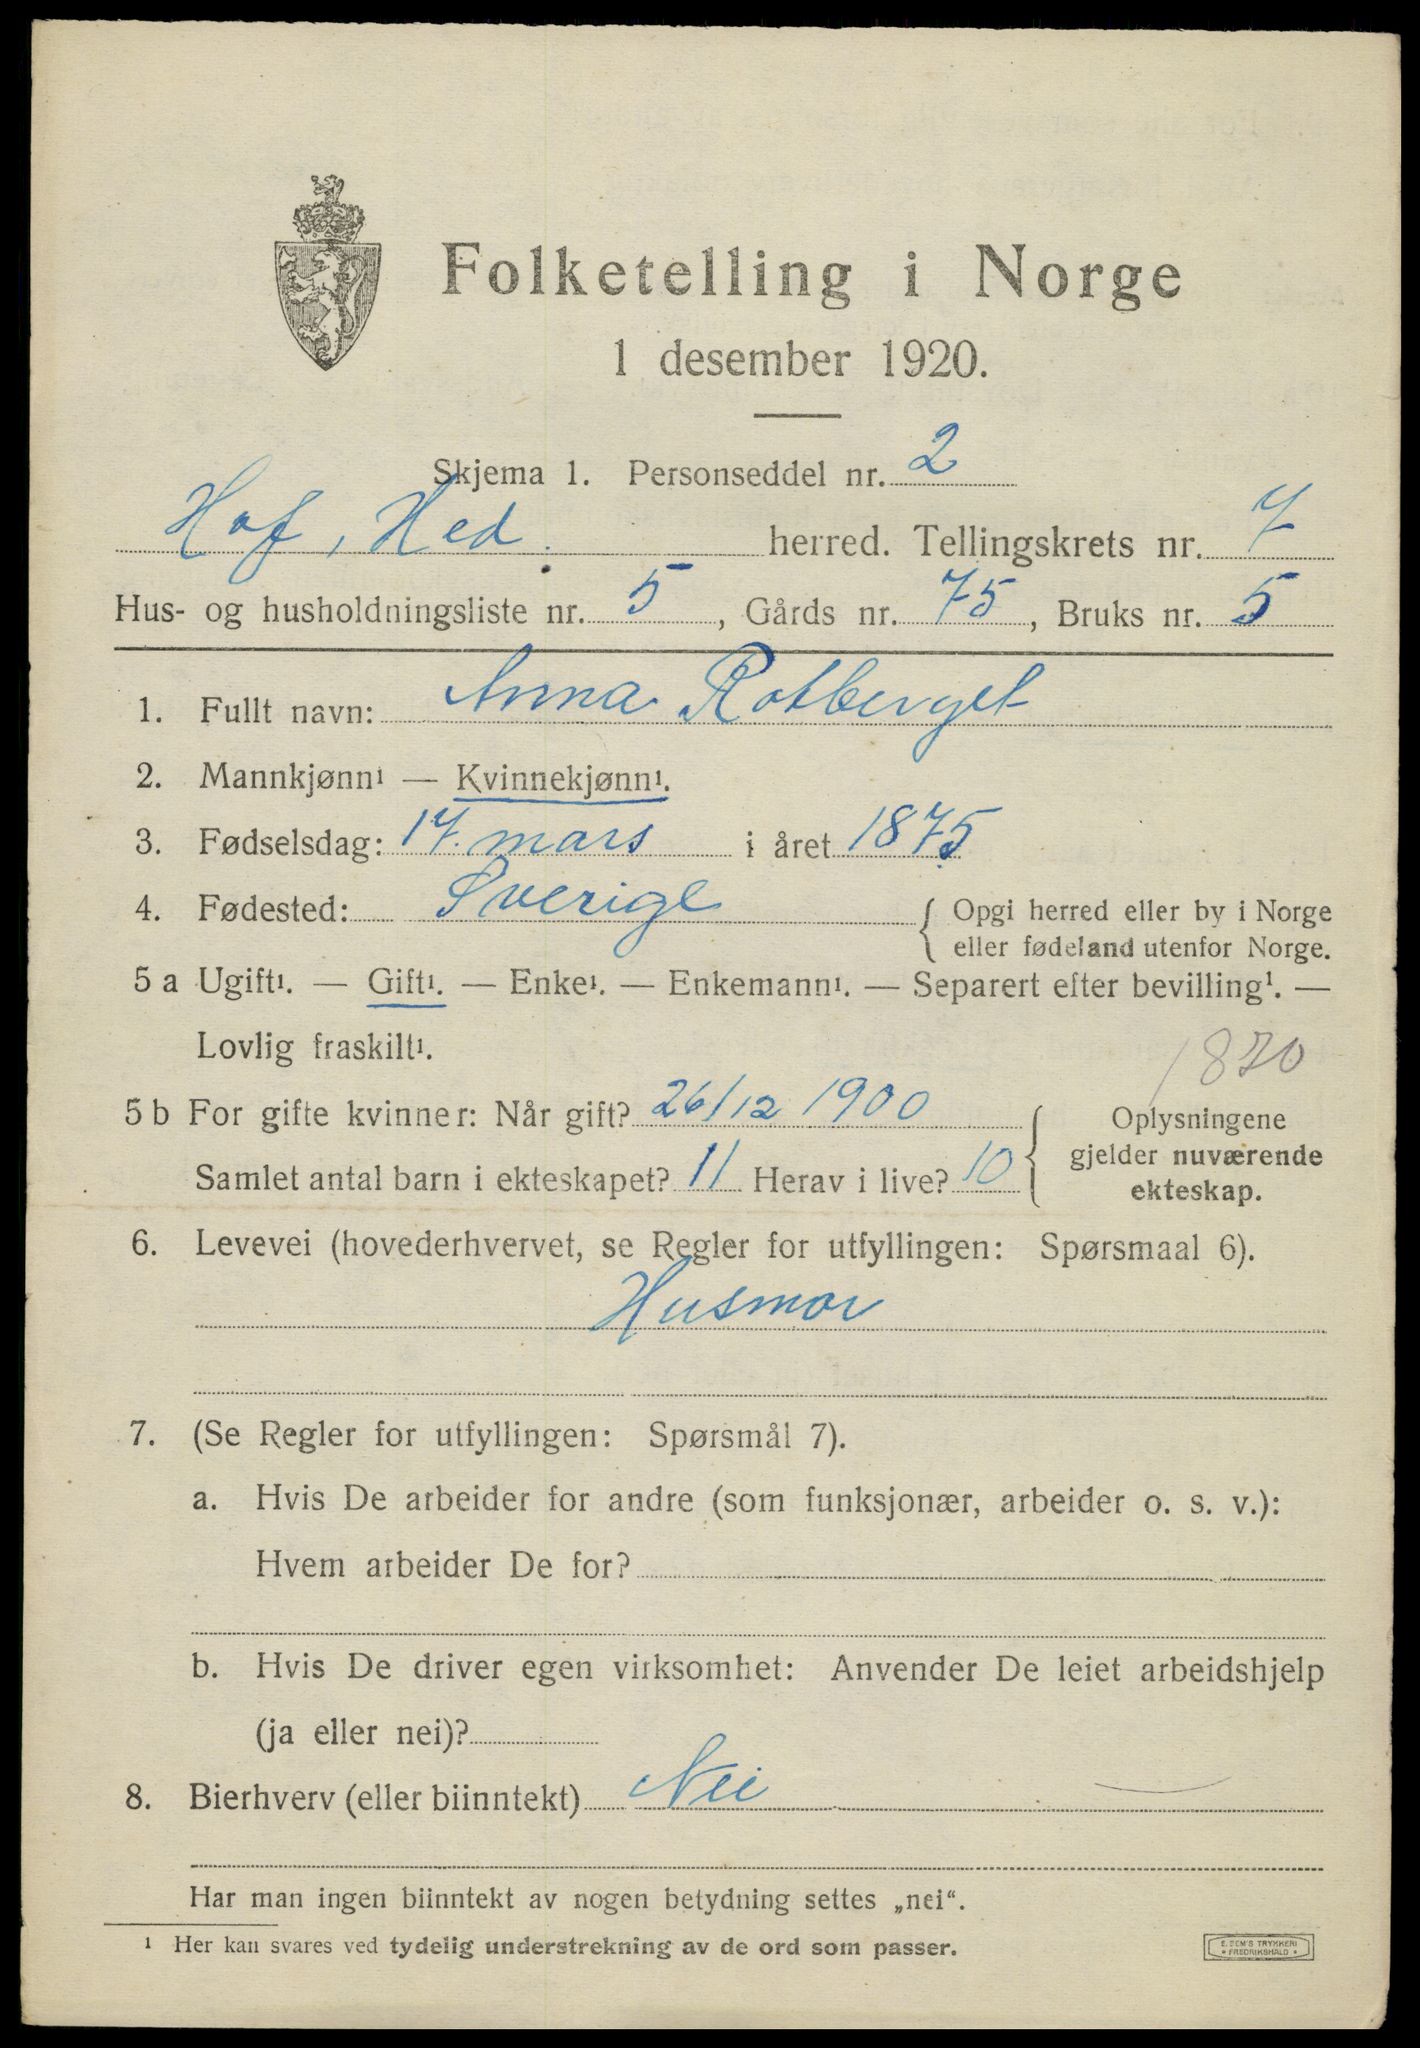 Folketelling i Norge
1 desember 1920.
Skjema 1. Personseddel nr. 2
Hof, Hed. herred. Tellingskrets nr. 7
Hus- og husholdningsliste nr. 5, Gårds nr. 75, Bruks nr. 5
1. Fullt navn: Anna Rotberget
2. Mannkjønn¹ — Kvinnekjønn¹.
3. Fødselsdag: 17. mars i året 1875
4. Fødested: Sverige { Opgi herred eller by i Norge
eller fødeland utenfor Norge.
5 a Ugift¹. — Gift¹. — Enke¹. — Enkemann¹. — Separert efter bevilling¹. —
Lovlig fraskilt¹.
1870
5 b For gifte kvinner: Når gift? 26/12 1900
Samlet antal barn i ekteskapet? 11 Herav i live? 10
Oplysningene
gjelder nuværende
ekteskap.
6. Levevei (hovederhvervet, se Regler for utfyllingen: Spørsmaal 6).
Husmor
7. (Se Regler for utfyllingen: Spørsmål 7).
a. Hvis De arbeider for andre (som funksjonær, arbeider o. s. v.):
Hvem arbeider De for?
b. Hvis De driver egen virksomhet: Anvender De leiet arbeidshjelp
(ja eller nei)?
8. Bierhverv (eller biinntekt) Nei
Har man ingen biinntekt av nogen betydning settes „nei“.
¹ Her kan svares ved tydelig understrekning av de ord som passer.
E. SEM'S TRYKKERI
• FREDRIKSHALD •